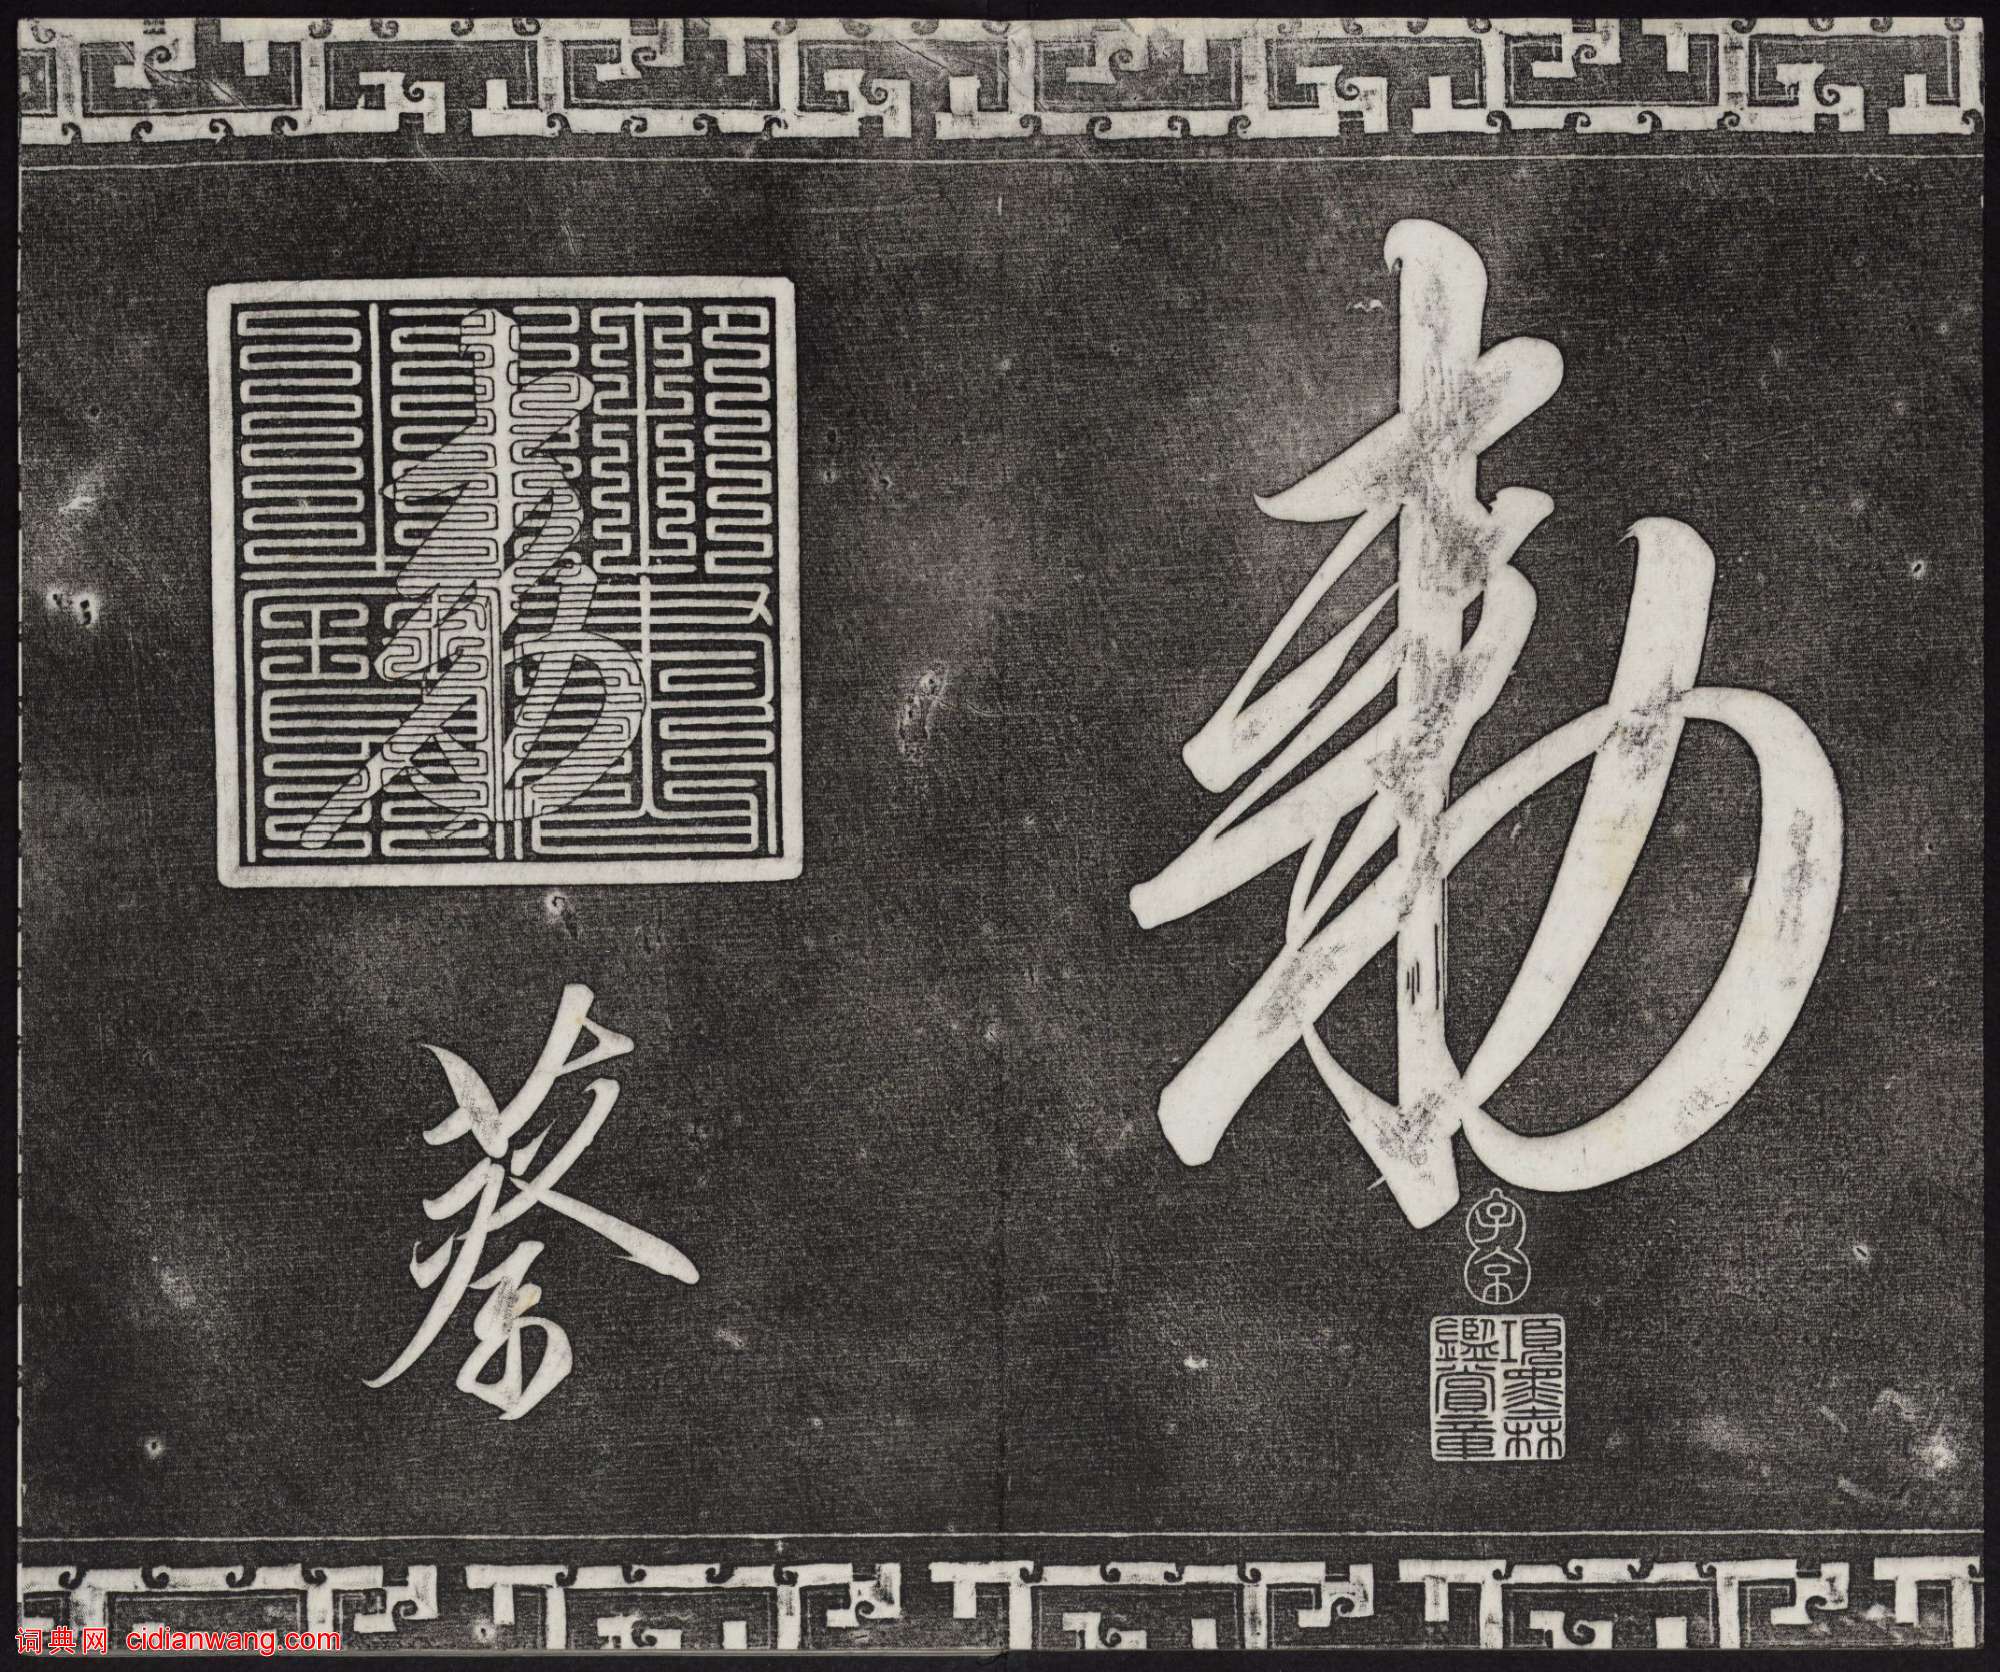 勑
子京
項墨林
鑑賞章
勑
蔡
词典网 cidianwang.com